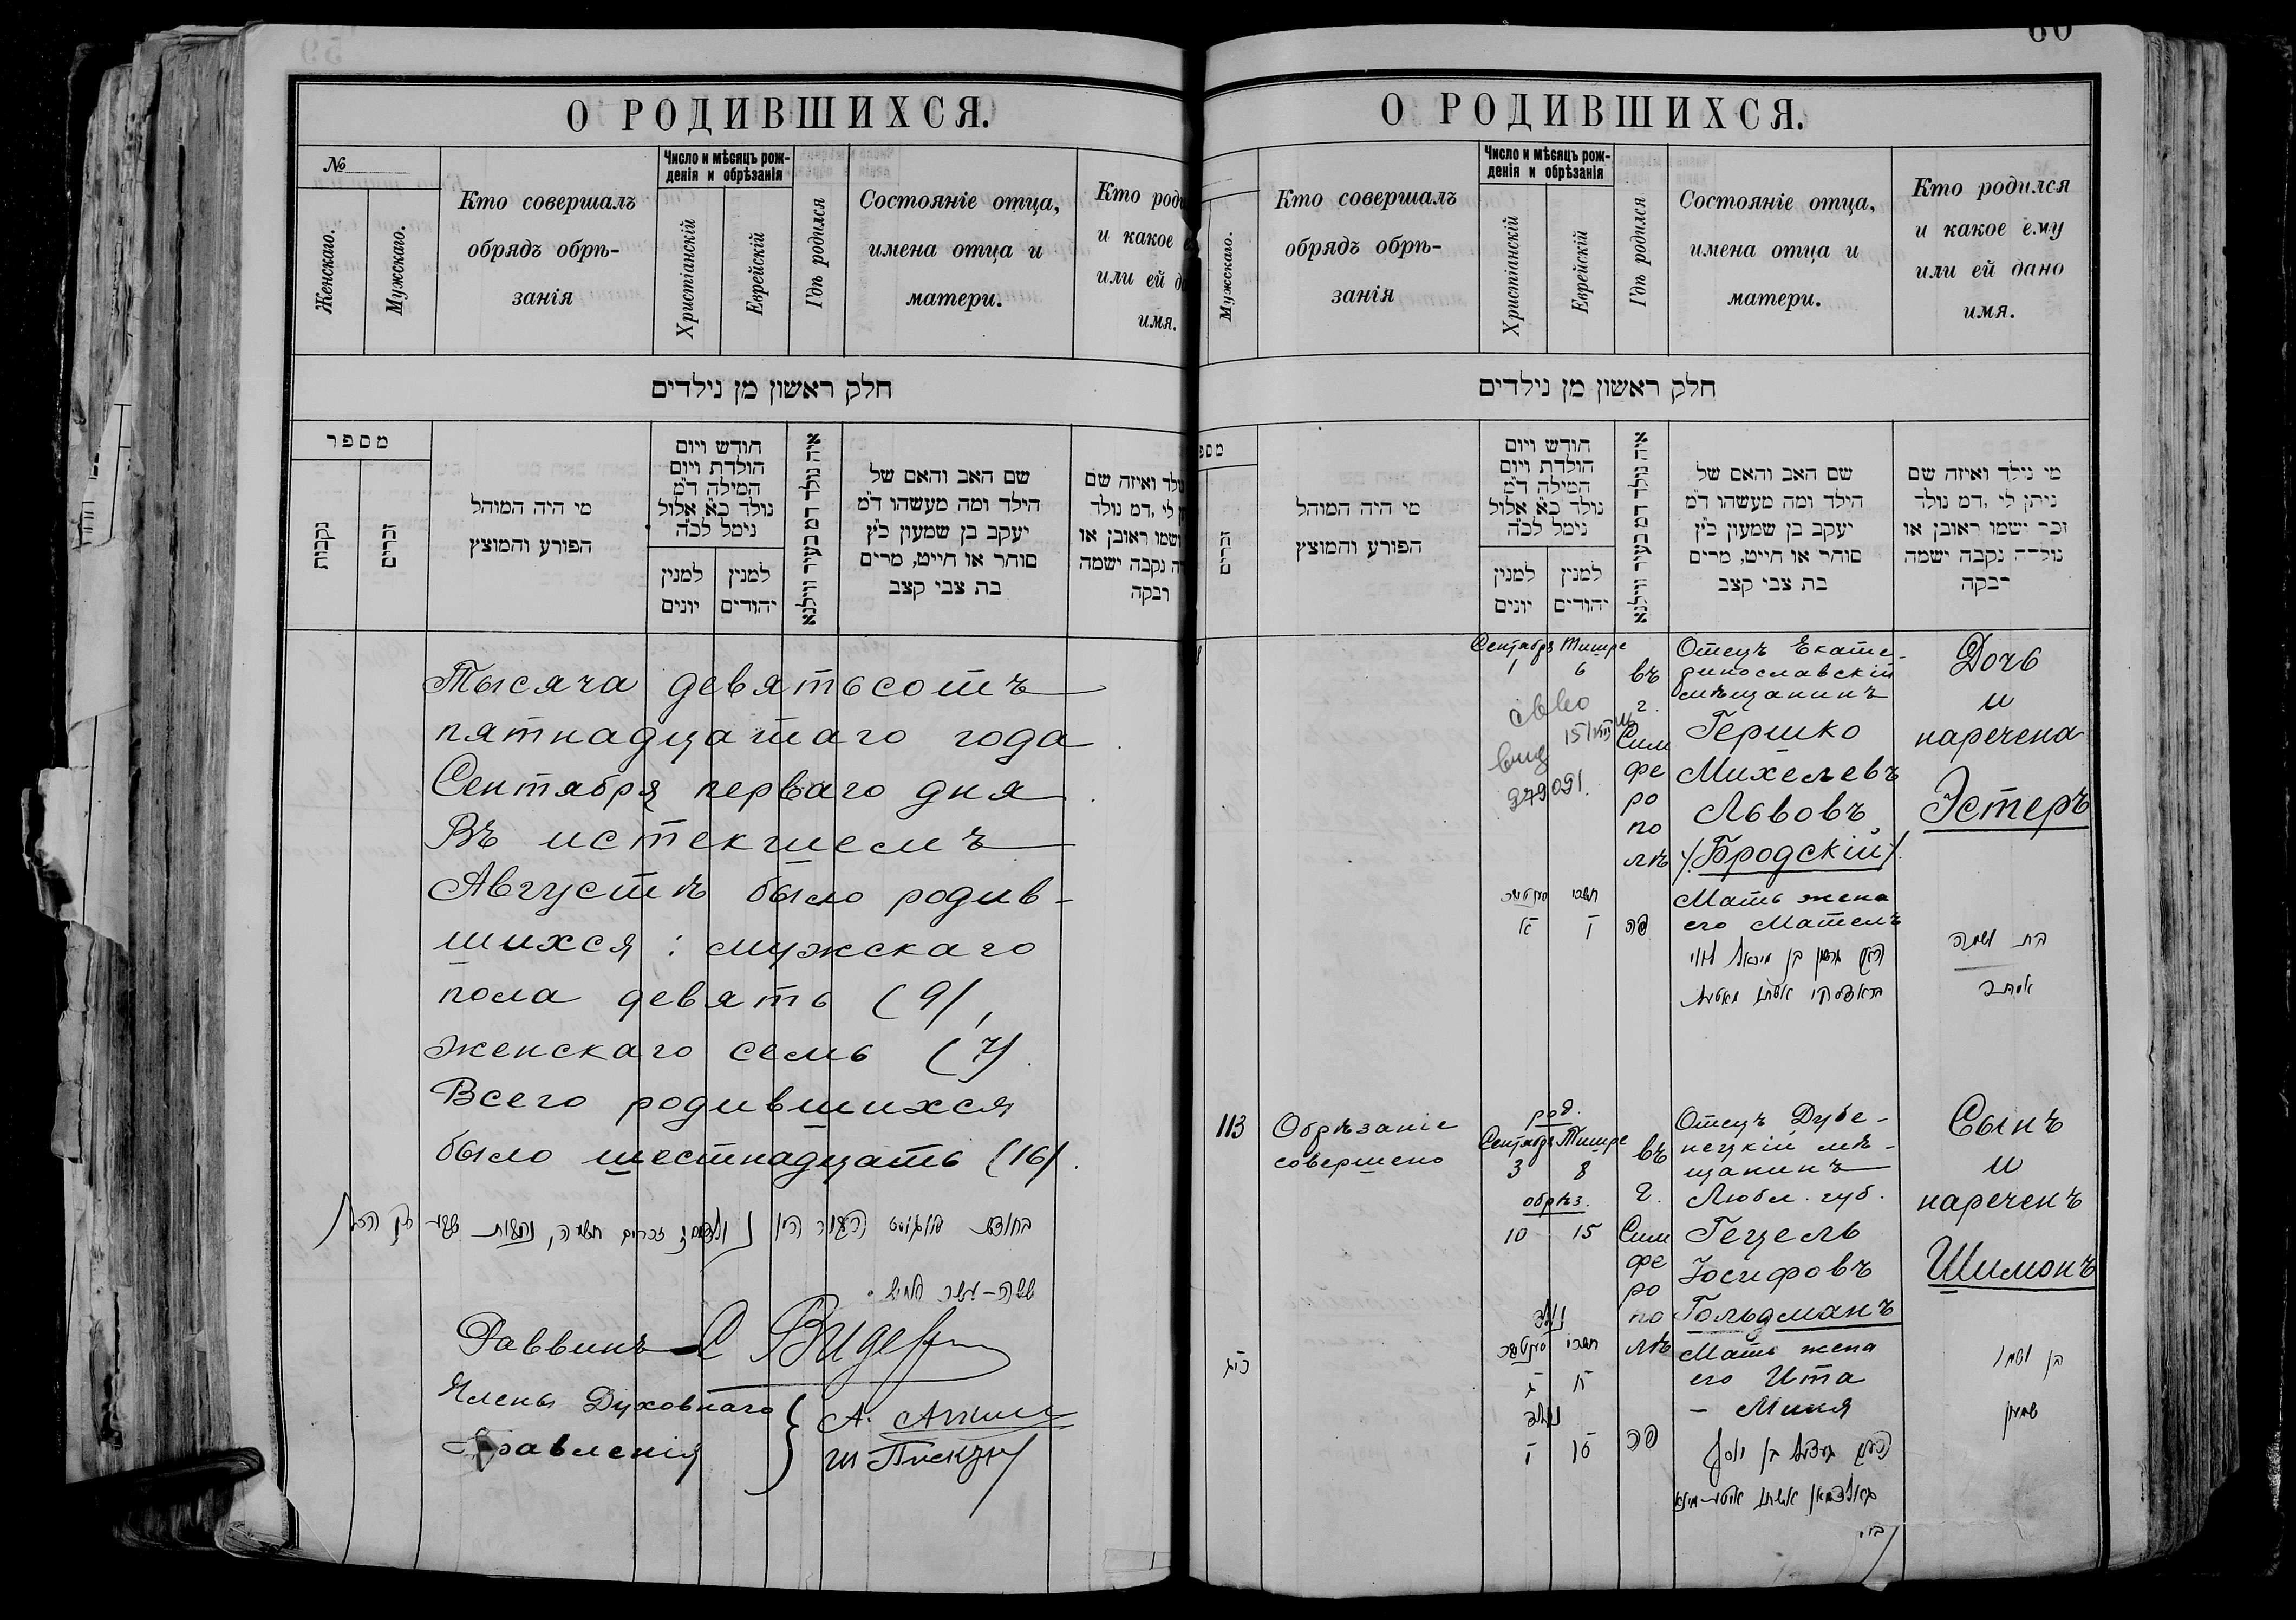 59
О РОДИВШИХСЯ.
№
Женскаго.
Мужскаго.
Кто совершалъ
обрядъ обрѣ-
занія
Число и мѣсяцъ рож-
денія и обрѣзанія
Христіанскій
Еврейскій
Гдѣ родился
Состояніе отца,
имена отца и
матери.
Кто роди
и какое
или ей
имя.
חלק ראשון מן נילדים
מספר
נקבות
זכרים
מי היה המוהל
הפורע והמוצץ
חודש ויום
הולדת ויום
המילה ד״מ
נולד כ״א אלול
נימל לכ״ה
למנין
יונים
למנין
יהודים
איה נולד דמ בעיר ווילנא
שם האב והאם של
הילד ומה מעשהו ד״מ
יעקב בן שמעון כ״ץ
סוחר או חייט, מרים
בת צבי קצב
ואיזה שם
לי ,דמ נולד
ישמו ראובן או
נקבה ישמה
רבקה
Тысяча девятьсотъ
пятнадцатаго года
Сентября перваго дня
Въ истекшемъ
Августѣ было родив-
шихся : мужскаго
пола девять (9),
женскаго семь (7).
Всего родившихся
было шестнадцать (16).
Раввинъ
Члены Духовнаго
Правленія
60
О РОДИВШИХСЯ.
Мужскаго.
Кто совершалъ
обрядъ обрѣ-
занія
Число и мѣсяцъ рож-
денія и обрѣзанія
Христіанскій
Еврейскій
Гдѣ родился
Состояніе отца,
имена отца и
матери.
Кто родился
и какое ему
или ей дано
имя.
חלק ראשון מן נילדים
זכרים
מי היה המוהל
הפורע והמוצץ
חודש ויום
הולדת ויום
המילה ד״מ
נולד כ״א אלול
נימל לכ״ה
למנין
יונים
למנין
יהודים
איה נולד דמ בעיר ווילנא
שם האב והאם של
הילד ומה מעשהו ד״מ
יעקב בן שמעון כ״ץ
סוחר או חייט, מרים
בת צבי קצב
מי נילד ואיזה שם
ניתן לי ,דמ נולד
זכר ישמו ראובן או
נולדה נקבה ישמה
רבקה
Сентября Тишре
1 6
въ
г.
Сим
фе
ро
по
лѣ
Отецъ Екате-
ринославскій
мѣщанинъ
Гершко
Михелевъ
Львовъ
/Бродскій/.
Мать жена
его Мателъ
Дочь
и
наречена
Эстеръ
279091.
תשרי
פה
אסתר
113
Обрѣзаніе
совершено
род.
Сентября Тишре
3 8
обрѣз.
10 15
въ
г.
Сим
фе
ро
по
лѣ
Отецъ Дубе-
нецкій мѣ-
щанинъ
Любл. губ.
Гецель
Іосифовъ
Гольдманъ
Мать жена
его Ита
- Миня
Сынъ
и
нареченъ
Шимонъ
תשרי
פה
שמעון